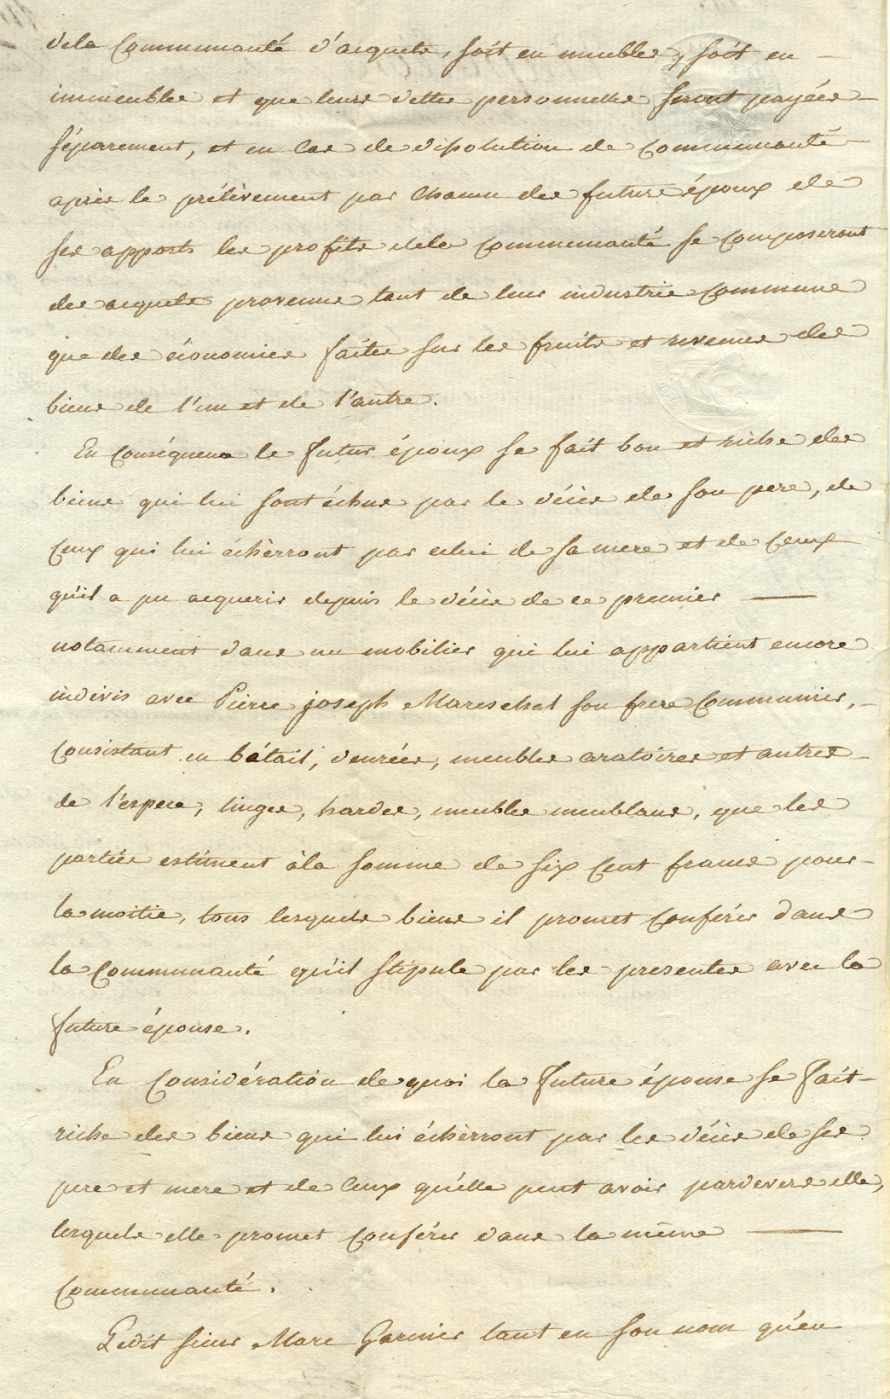 dela Communauté d'acquets, soit en meubles, soit en -
immeubles et que leurs dettes personnelles seront payées -
séparement, et en Cas de dissolution de Communauté -
après le prélèvement par Chacun des futurs époux de
ses apports les profits dela Communauté se Composeront
des acquets provenus tant de leur industrie Commune
que des économies faites sur les fruits et revenus des
biens de l'un et de l'autre.
En Conséquence le futur époux se fait bon et riche des
biens qui lui sont échus par le décès de son pere, de
Ceux qui lui échèrront par celui de sa mere et de Ceux
qu'il a pu acquerir depuis le décès de ce premier —
notamment dans un mobilier qui lui appartient encore
indivis avec Pierre joseph Mareschal son frere Communier, -
Consistant en bétail, denrées, meubles aratoires et autres -
de l'espece, linges, hardes, meubles meublans, que les
parties estiment àla somme de six Cent francs pour -
la moitié, tous lesquels biens il promet Conférer dans
la Communauté qu'il stipule par les presentes avec la
future épouse.
En Considération de quoi la future épouse se fait -
riche des biens qui lui échèrront par les décès de ses
pere et mere et de Ceux qu'elle peut avoir pardevers elle,
lesquels elle promet Conférer dans la même —
Communauté.
Ledit sieur Marc Garnier tant en son nom qu'en